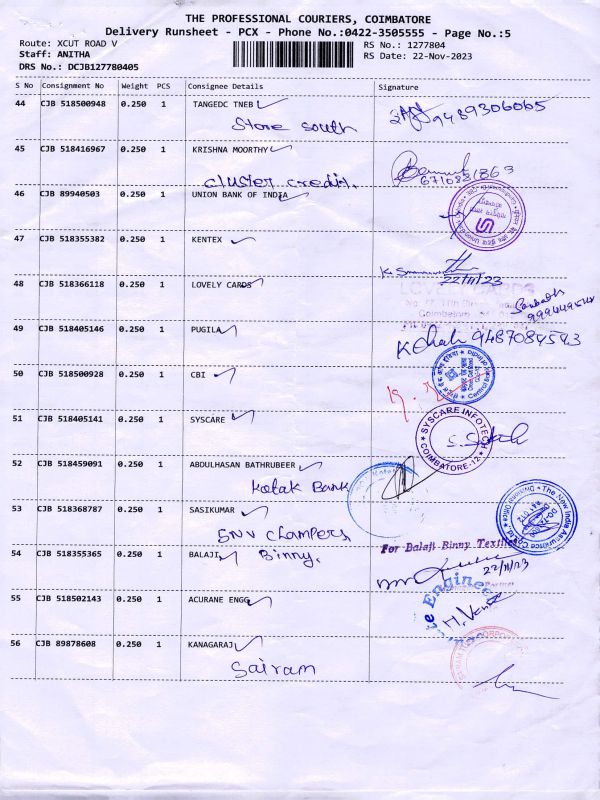 THE PROFESSIONAL COURIERS, COIMBATORE
Delivery Runsheet - PCX - Phone No.:0422-3505555 - Page No.:5
Route: XCUT ROAD V
RS No.: 1277804
Staff: ANITHA
RS Date: 22-Nov-2023
DRS No.: DCJB127780405
S No Consignment No Weight PCS Consignee Details Signature
44 CJB 518500948 0.250 1 TANGEDC TNEB 9489306065
Store south
45 CJB 518416967 0.250 1 KRISHNA MOORTHY
cluster credit.
46 CJB 89940503 0.250 1 UNION BANK OF INDIA
47 CJB 518355382 0.250 1 KENTEX
22/11/23
48 CJB 518366118 0.250 1 LOVELY CARDS
Coimbatore
49 CJB 518405146 0.250 1 PUGILA 9487084543
50 CJB 518500928 0.250 1 CBI
51 CJB 518405141 0.250 1 SYSCARE
SYSCARE INFOTECH
COIMBATORE-12
52 CJB 518459091 0.250 1 ABDULHASAN BATHRUBEER
Kotak Bank
53 CJB 518368787 0.250 1 SASIKUMAR
The New India Assurance Co. Ltd
Divisional Office
SNV Champers
For Balaji Binny Textiles
54 CJB 518355365 0.250 1 BALAJI Binny.
22/11/23
55 CJB 518502143 0.250 1 ACURANE ENGG
56 CJB 89878608 0.250 1 KANAGARAJ
Sairam